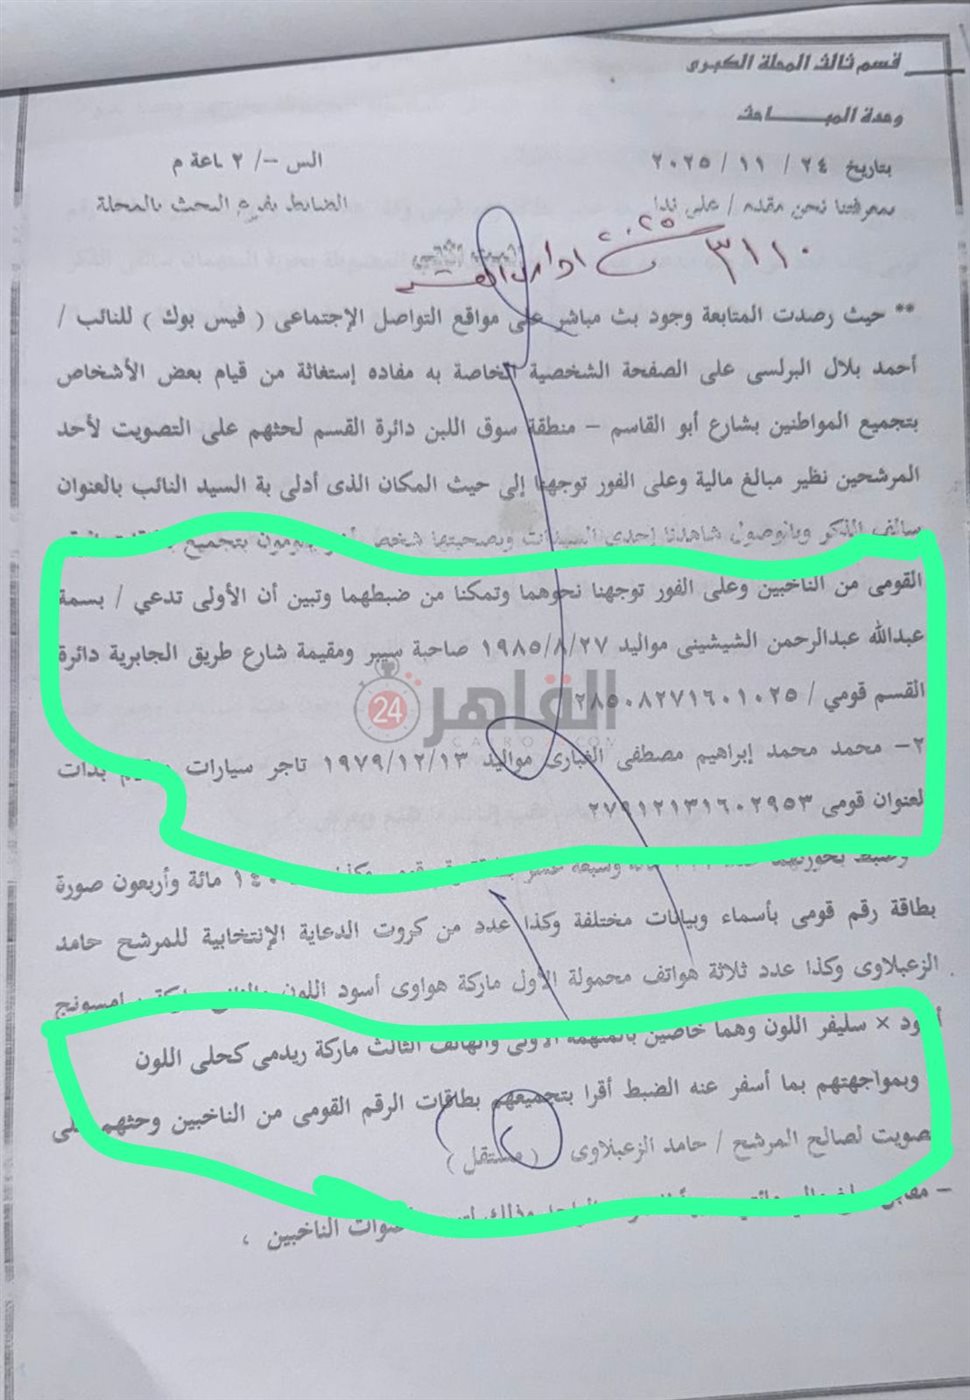 قسم ثالث المحلة الكبرى
وحدة المبـــــاحث
بتاريخ ٢٤ / ١١ / ٢٠٢٥ الس -/ ٢ ـاعة م
بمعرفتنا نحن مقدم / على ندا الضابط بفرع البحث بالمحلة
٣١١٠ ٢٠٢٥
** حيث رصدت المتابعة وجود بث مباشر على مواقع التواصل الإجتماعى ( فيس بوك ) للنائب /
أحمد بلال البرلسى على الصفحة الشخصية الخاصة به مفاده إستغاثة من قيام بعض الأشخاص
بتجميع المواطنين بشارع أبو القاسم – منطقة سوق اللبن دائرة القسم لحثهم على التصويت لأحد
المرشحين نظير مبالغ مالية وعلى الفور توجهنا إلى حيث المكان الذى أدلى بة السيد النائب بالعنوان
سالف الذكر وبالوصول شاهدنا إحدى السيدات وبصحبتها شخص
القومى من الناخبين وعلى الفور توجهنا نحوهما وتمكنا من ضبطهما وتبين أن الأولى تدعي / بسمة
عبدالله عبدالرحمن الشيشينى مواليد ١٩٨٥/٨/٢٧ صاحبة سيبر ومقيمة شارع طريق الجابرية دائرة
القسم قومي / ٢٨٥٠٨٢٧١٦٠١٠٢٥
القاهرة 24
CAIRO 24
٢– محمد محمد إبراهيم مصطفى الغبارى مواليد ١٩٧٩/١٢/١٣ تاجر سيارات بذات
لعنوان قومى ٢٧٩١٢١٣١٦٠٢٩٥٣
١٤٠ مائة وأربعون صورة
بطاقة رقم قومى بأسماء وبيانات مختلفة وكذا عدد من كروت الدعاية الإنتخابية للمرشح حامد
الزعبلاوى وكذا عدد ثلاثة هواتف محمولة الأول ماركة هواوى أسود اللون
× سليفر اللون وهما خاصين بالمتهمة الأولى والهاتف الثالث ماركة ريدمى كحلى اللون
وبمواجهتهم بما أسفر عنه الضبط أقرا بتجميعهم بطاقات الرقم القومى من الناخبين وحثهم
صويت لصالح المرشح / حامد الزعبلاوى ( مستقل )
الناخبين ،